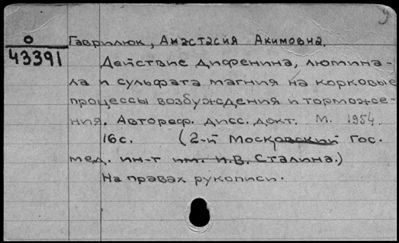 Гаврилюк, Анастасия Акимовна.
0
43391
Действие дифенина, люмина-
ла и сульфата магния на корковые
процессы возбуждения и торможе-
ния. Автореф. дисс. докт. М. 1954.
16с. (2-й Московский Гос.
мед. ин-т им. И.В. Сталина.)
На правах рукописи.